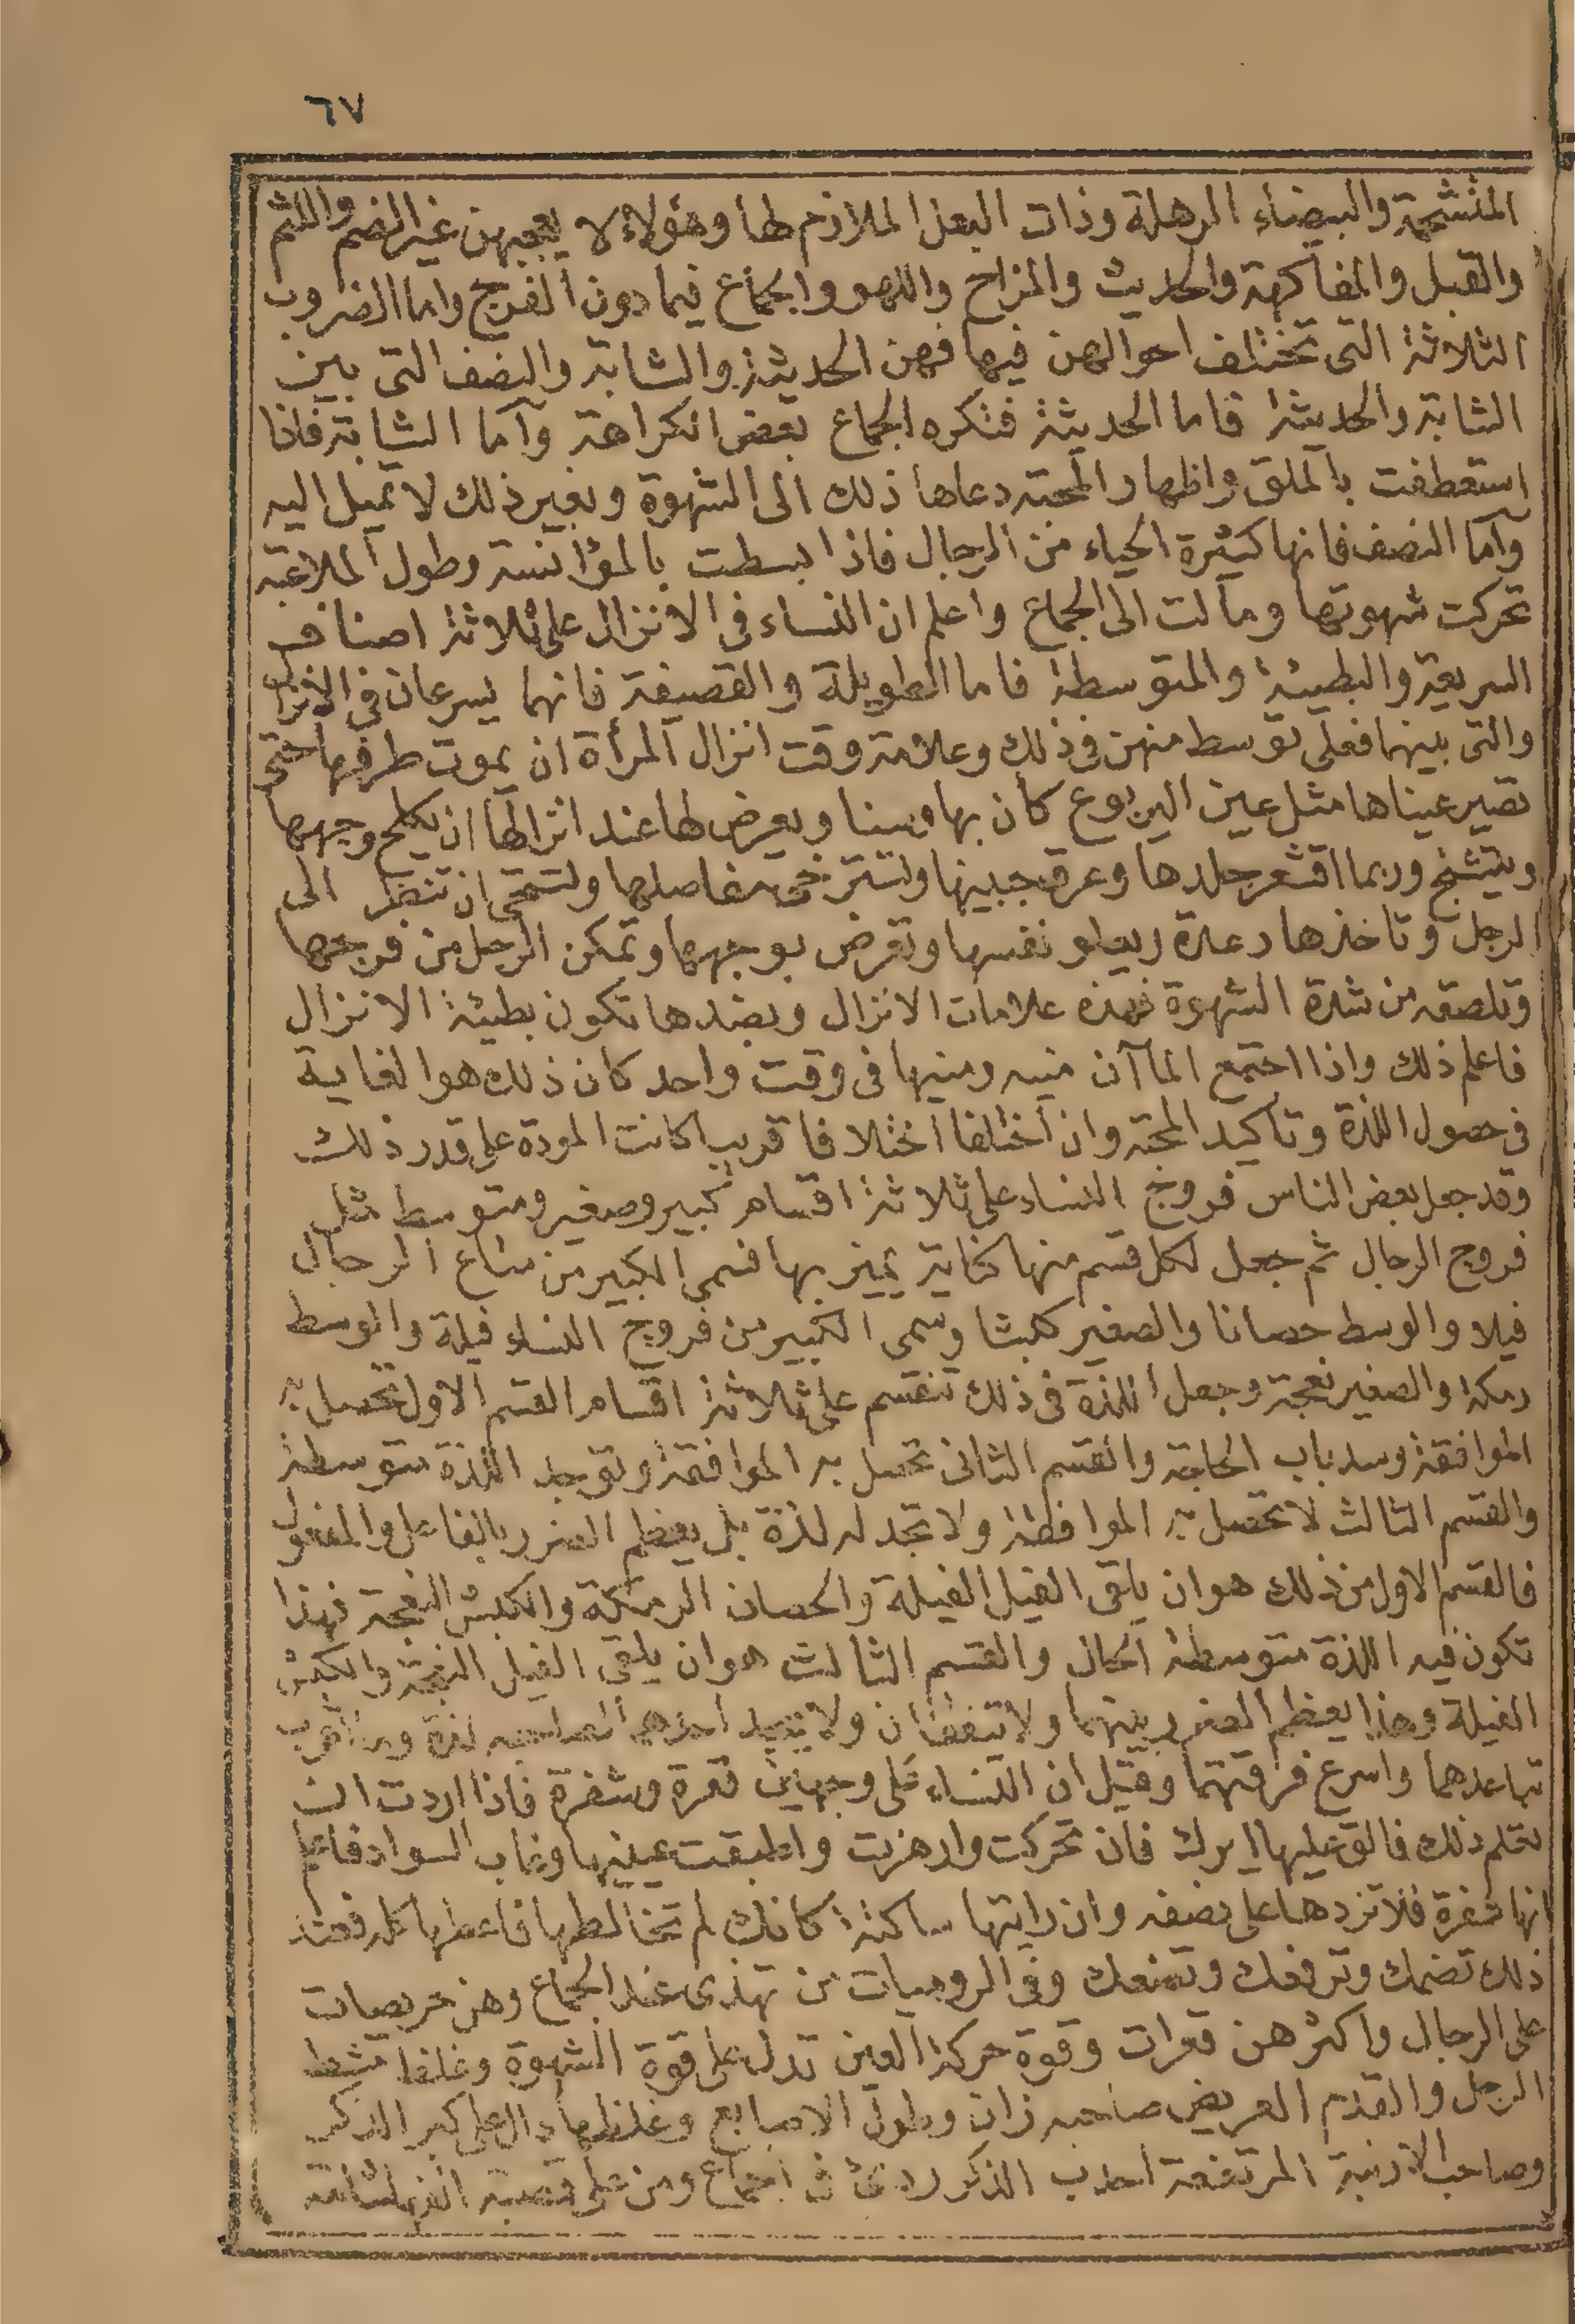 ٦٧
المنشحمة والبيضاء الرهلة وذات البعل الملازم لها وهؤلاء لا يعجبهن غير الضم واللثم
والقبل والمفاكهة والحديث والمزاح واللهو والجماع فيما دون الفرج واما الضروب
الثلاثة التى تختلف احوالهن فيها فهن الحديثة والشابة والنصف التى بين
الشابة والحديثة فاما الحديثة فتكره الجماع بعض الكراهة وأما الشابة فاذا
استعطفت بالملق واظهار المحبة دعاها ذلك الى الشهوة وبغير ذلك لا تميل اليه
وأما النصف فانها كثيرة الحياء من الرجال فاذا بسطت بالمؤانسة وطول الملاعبة
تحركت شهوتها ومالت الى الجماع واعلم ان النساء فى الانزال على ثلاثة اصناف
السريعة والبطيئة والمتوسطة فاما الطويلة والقصيفة فانهما يسرعان فى الانزال
والتى بينهما فعلى توسط منهن فى ذلك وعلامة وقت انزال المرأة ان يموت طرفها حتى
تصير عيناها مثل عين اليربوع كأن بها وسنا ويعرض لها عند انزالها ان يكلح وجهها
ويتشنج وربما اقشعر جلدها وعرق جبينها وتسترخى مفاصلها وتستحى ان تنظر الى
الرجل وتاخذها رعدة ويعلو نفسها وتعرض بوجهها وتمكن الرجل من فرجها
وتلصقه من شدة الشهوة فهذه علامات الانزال وبضدها تكون بطيئة الانزال
فاعلم ذلك واذا اجتمع الماآن منيه ومنيها فى وقت واحد كان ذلك هو الغاية
فى حصول اللذة وتاكيد المحبة وان اختلفا اختلافا قريبا كانت المودة على قدر ذلك
وقد جعل بعض الناس فروج النساء على ثلاثة اقسام كبير وصغير ومتوسط مثل
فروج الرجال ثم جعل لكل قسم منها كناية يميز بها فسمى الكبير من متاع الرجال
فيلا والوسط حصانا والصغير كبشا وسمى الكبير من فروج النساء فيلة والوسط
رمكة والصغير نعجة وجعل اللذة فى ذلك تنقسم على ثلاثة اقسام القسم الاول تحصل به
الموافقة وسد باب الحاجة والقسم الثانى تحصل به الموافقة وتوجد اللذة متوسطة
والقسم الثالث لا تحصل به الموافقة ولا تجد له لذة بل يعظم الضرر بالفاعل والمفعول
فالقسم الاول من ذلك هو ان يلقى الفيل الفيلة والحصان الرمكة والكبش النعجة فهذا
تكون فيه اللذة متوسطة الحال والقسم الثالث هو ان يلقى الفيل النعجة والكبش
الفيلة وهذا يعظم الضرر بينهما ولا يتفقان ولا يجد احدهما لصاحبه لذة وما اقرب
تباعدهما واسرع فرقتهما وقيل ان النساء على وجهين قعرة وشفرة فاذا اردت ان
تعلم ذلك فالق عليها ايرك فان تحركت وارهزت واطبقت عينيها وغاب السواد فاعلم
انها شفرة فلا تزدها على نصفه وان رايتها ساكنة كانك لم تخالطها فاعطها كله فعند
ذلك تضمك وترفعك وتمنعك وفى الروميات من تهذى عند الجماع وهن حريصات
على الرجال واكثرهن قعرات وقوة حركة العين تدل على قوة الشهوة وغلظ مشط
الرجل والقدم العريض صاحبه زان وطول الاصابع وغلظها دال على كبر الذكر
وصاحب الارنبة المرتفعة احدب الذكر ردئ فى الجماع ومن على قصبة انفه